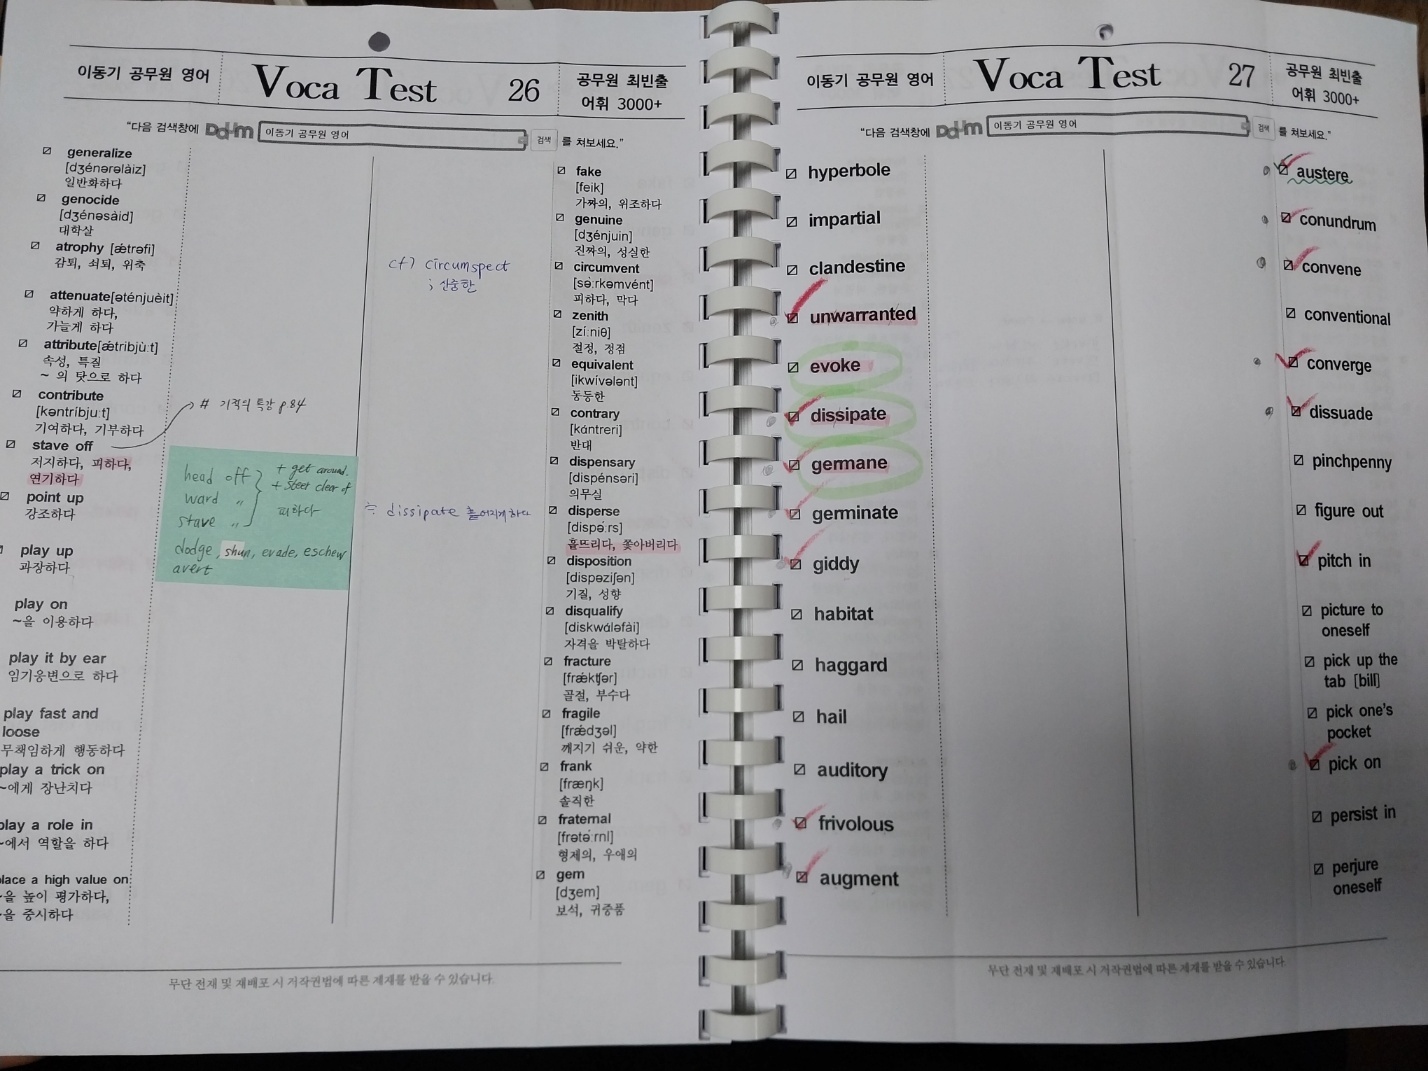 이동기 공무원 영어
Voca Test
26
공무원 최빈출
어휘 3000+
"다음 검색창에 Daum 이동기 공무원 영어 검색 를 쳐보세요."
generalize
[dʒénərəlàiz]
일반화하다
genocide
[dʒénəsàid]
대학살
atrophy [ǽtrəfi]
감퇴, 쇠퇴, 위축
attenuate[əténjuèit]
약하게 하다,
가늘게 하다
attribute[ǽtribjù:t]
속성, 특질
~ 의 탓으로 하다
contribute
[kəntríbju:t]
기여하다, 기부하다
stave off
저지하다, 피하다,
연기하다
point up
강조하다
play up
과장하다
play on
~을 이용하다
play it by ear
임기응변으로 하다
play fast and
loose
무책임하게 행동하다
play a trick on
~에게 장난치다
play a role in
~에서 역할을 하다
place a high value on
~을 높이 평가하다,
~을 중시하다
# 기적의 특강 p.84
head off
ward 〃
stave 〃
+ get around.
+ steer clear of
피하다
dodge, shun, evade, eschew
avert
cf) circumspect
; 신중한
≒ dissipate 흩어지게 하다
fake
[feik]
가짜의, 위조하다
genuine
[dʒénjuin]
진짜의, 성실한
circumvent
[sə̀:rkəmvént]
피하다, 막다
zenith
[zí:niθ]
절정, 정점
equivalent
[ikwívələnt]
동등한
contrary
[kántreri]
반대
dispensary
[dispénsəri]
의무실
disperse
[dispə́:rs]
흩뜨리다, 쫓아버리다
disposition
[dispəziʃən]
기질, 성향
disqualify
[diskwáləfài]
자격을 박탈하다
fracture
[frǽktʃər]
골절, 부수다
fragile
[frǽdʒəl]
깨지기 쉬운, 약한
frank
[fræŋk]
솔직한
fraternal
[frətə́:rnl]
형제의, 우애의
gem
[dʒem]
보석, 귀중품
무단 전재 및 재배포 시 저작권법에 따른 제재를 받을 수 있습니다.
이동기 공무원 영어
Voca Test
27
공무원 최빈출
어휘 3000+
"다음 검색창에 Daum 이동기 공무원 영어 검색 를 쳐보세요."
hyperbole
impartial
clandestine
unwarranted
evoke
dissipate
germane
germinate
giddy
habitat
haggard
hail
auditory
frivolous
augment
austere
conundrum
convene
conventional
converge
dissuade
pinchpenny
figure out
pitch in
picture to
oneself
pick up the
tab [bill]
pick one's
pocket
pick on
persist in
perjure
oneself
무단 전재 및 재배포 시 저작권법에 따른 제재를 받을 수 있습니다.